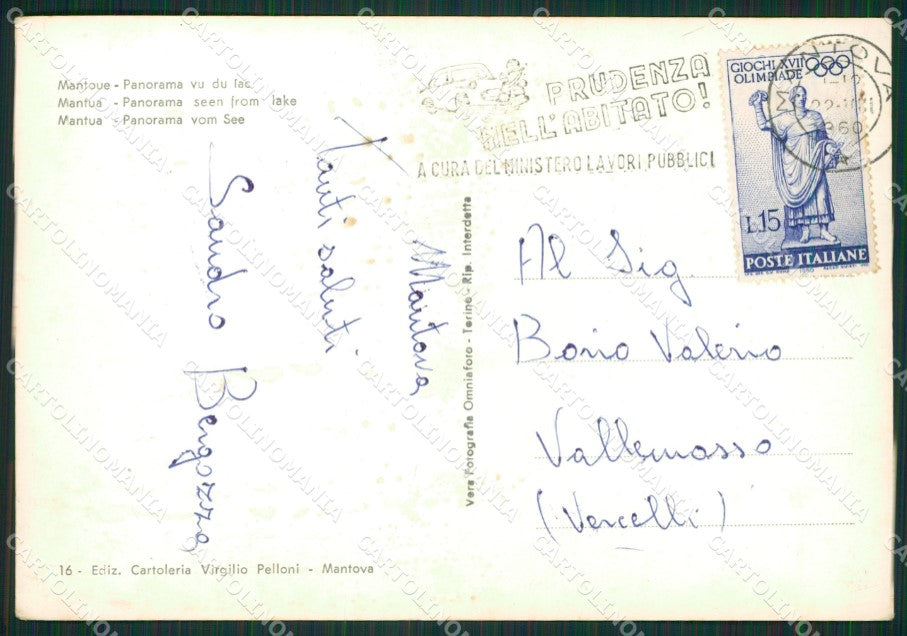 Mantoue - Panorama vu du lac
Mantua - Panorama seen from lake
Mantua - Panorama vom See
PRUDENZA
NELL'ABITATO!
A CURA DEL MINISTERO LAVORI PUBBLICI
MANTOVA
1960
GIOCHI XVII
OLIMPIADE
L.15
POSTE ITALIANE
Mantova
Tanti saluti
Sandro Bergozza
Vera Fotografia Omniafoto - Torino - Rip. Interdetta
Al Sig.
Borio Valerio
Vallemosso
(Vercelli)
16 - Ediz. Cartoleria Virgilio Pelloni - Mantova
CARTOLINOMANIA